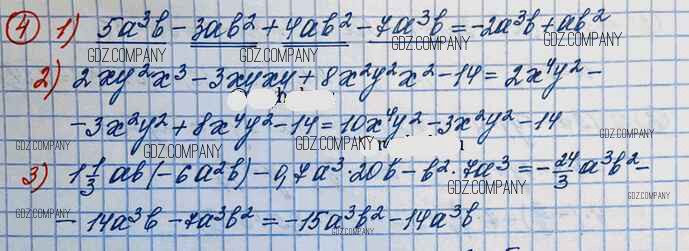 ④ 1) 5a³b − 3ab² + 4ab² − 7a³b = −2a³b + ab²
GDZ.COMPANY GDZ.COMPANY GDZ.COMPANY
2) 2xy²x³ − 3xyxy + 8x²y²x² − 14 = 2x⁴y² −
− 3x²y² + 8x⁴y² − 14 = 10x⁴y² − 3x²y² − 14
GDZ.COMPANY GDZ.COMPANY GDZ.COMPANY GDZ.COMPANY
3) 1 1/3 ab(−6a²b) − 0,7a³·20b − b²·7a³ = −24/3 a³b² −
GDZ.COMPANY GDZ.COMPANY
− 14a³b − 7a³b² = −15a³b² − 14a³b
GDZ.COMPANY GDZ.COMPANY GDZ.COMPANY